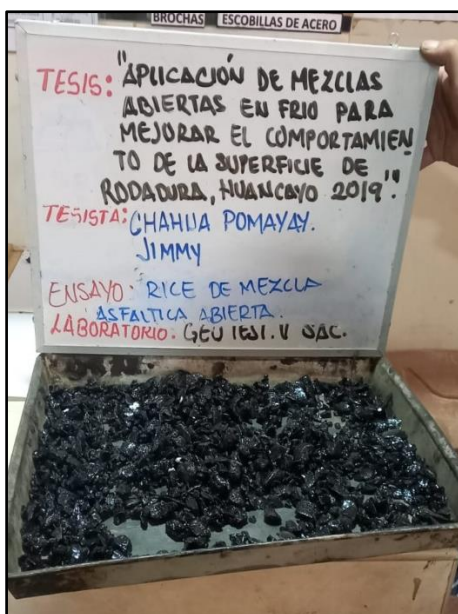 BROCHAS ESCOBILLAS DE ACERO
TESIS: "APLICACIÓN DE MEZCLAS
ABIERTAS EN FRIO PARA
MEJORAR EL COMPORTAMIEN
TO DE LA SUPERFICIE DE
RODADURA, HUANCAYO 2019".
TESISTA: CHAHUA POMAYAY.
JIMMY
ENSAYO: RICE DE MEZCLA
ASFALTICA ABIERTA.
LABORATORIO: GEO TEST. V SAC.